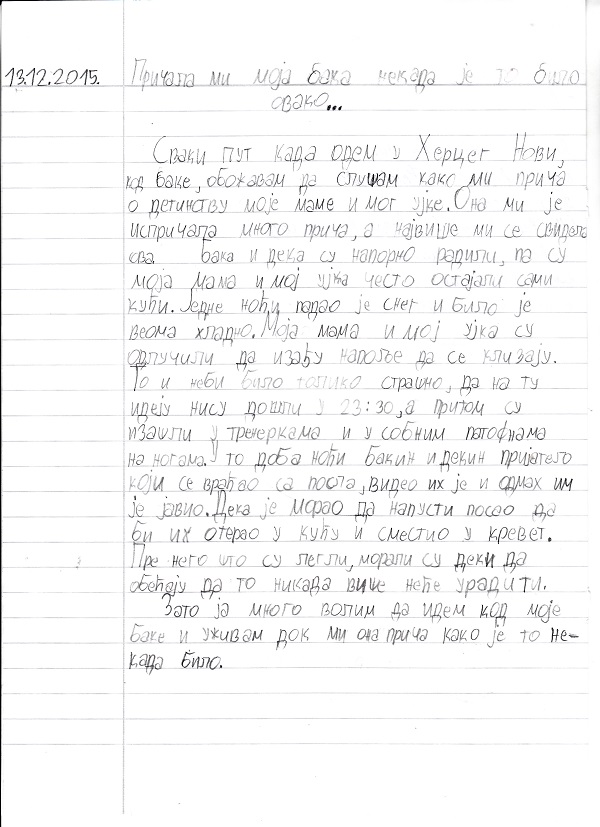 13.12.2015.
Причала ми моја бака некада је то било
овако...
Сваки пут када одем у Херцег Нови,
код баке, обожавам да слушам како ми прича
о детинству моје маме и мог ујке. Она ми је
испричала много прича, а највише ми се свидела
ова бака и дека су напорно радили, па су
моја мама и мој ујка често остајали сами
кући. Једне ноћи падао је снег и било је
веома хладно. Моја мама и мој ујка су
одлучили да изађу напоље да се клизају.
То и неби било толико страшно, да на ту
идеју нису дошли у 23:30, а притом су
изашли у тренеркама и у собним патофнама
на ногама. У то доба ноћи бакин и декин пријатељ
који се враћао са посла, видео их је и одмах им
је јавио. Дека је морао да напусти посао да
би их отерао у кућу и сместио у кревет.
Пре него што су легли, морали су деки да
обећају да то никада више неће урадити.
Зато ја много волим да идем код моје
баке и уживам док ми она прича како је то не-
када било.